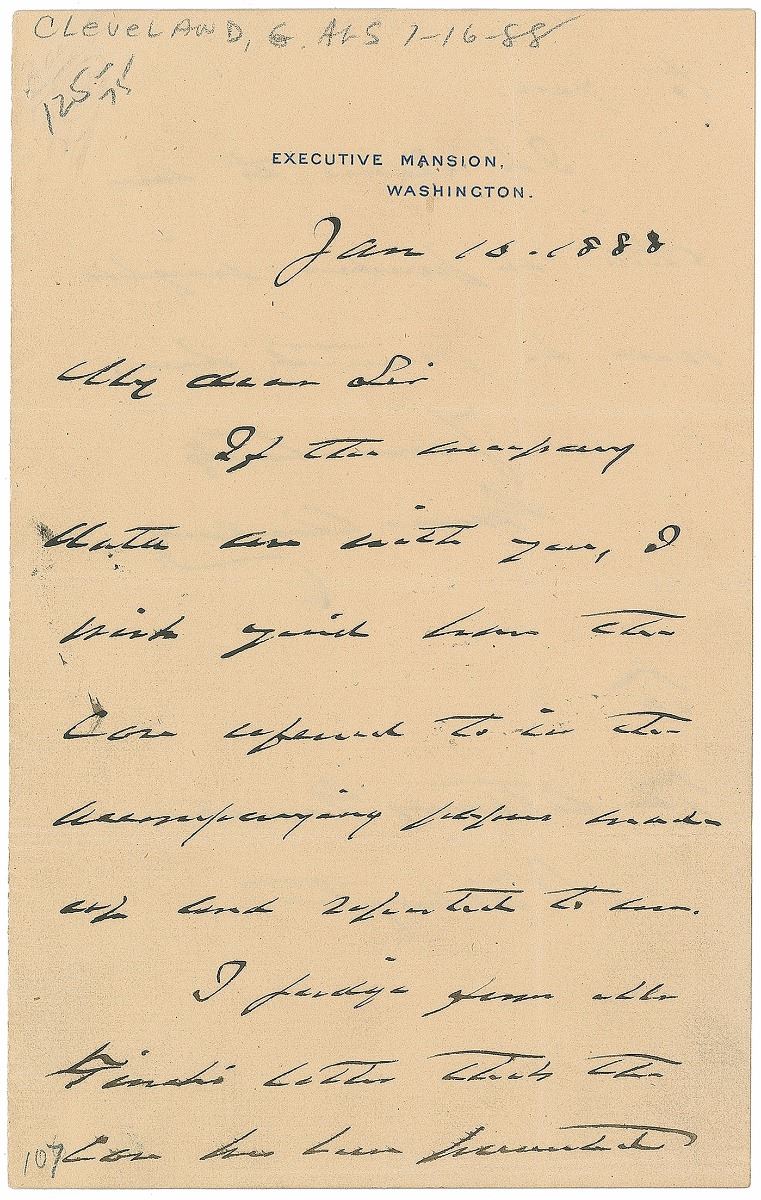 CLEVELAND, G. ALS 7-16-88
125
75
EXECUTIVE MANSION,
WASHINGTON.
Jan 16. 1888
My dear Sir
If the necessary
data are with you, I
wish you'd have the
Case referred to in the
accompanying papers made
up and reported to me.
I judge from Mr
letter that the
107
Case has been presented